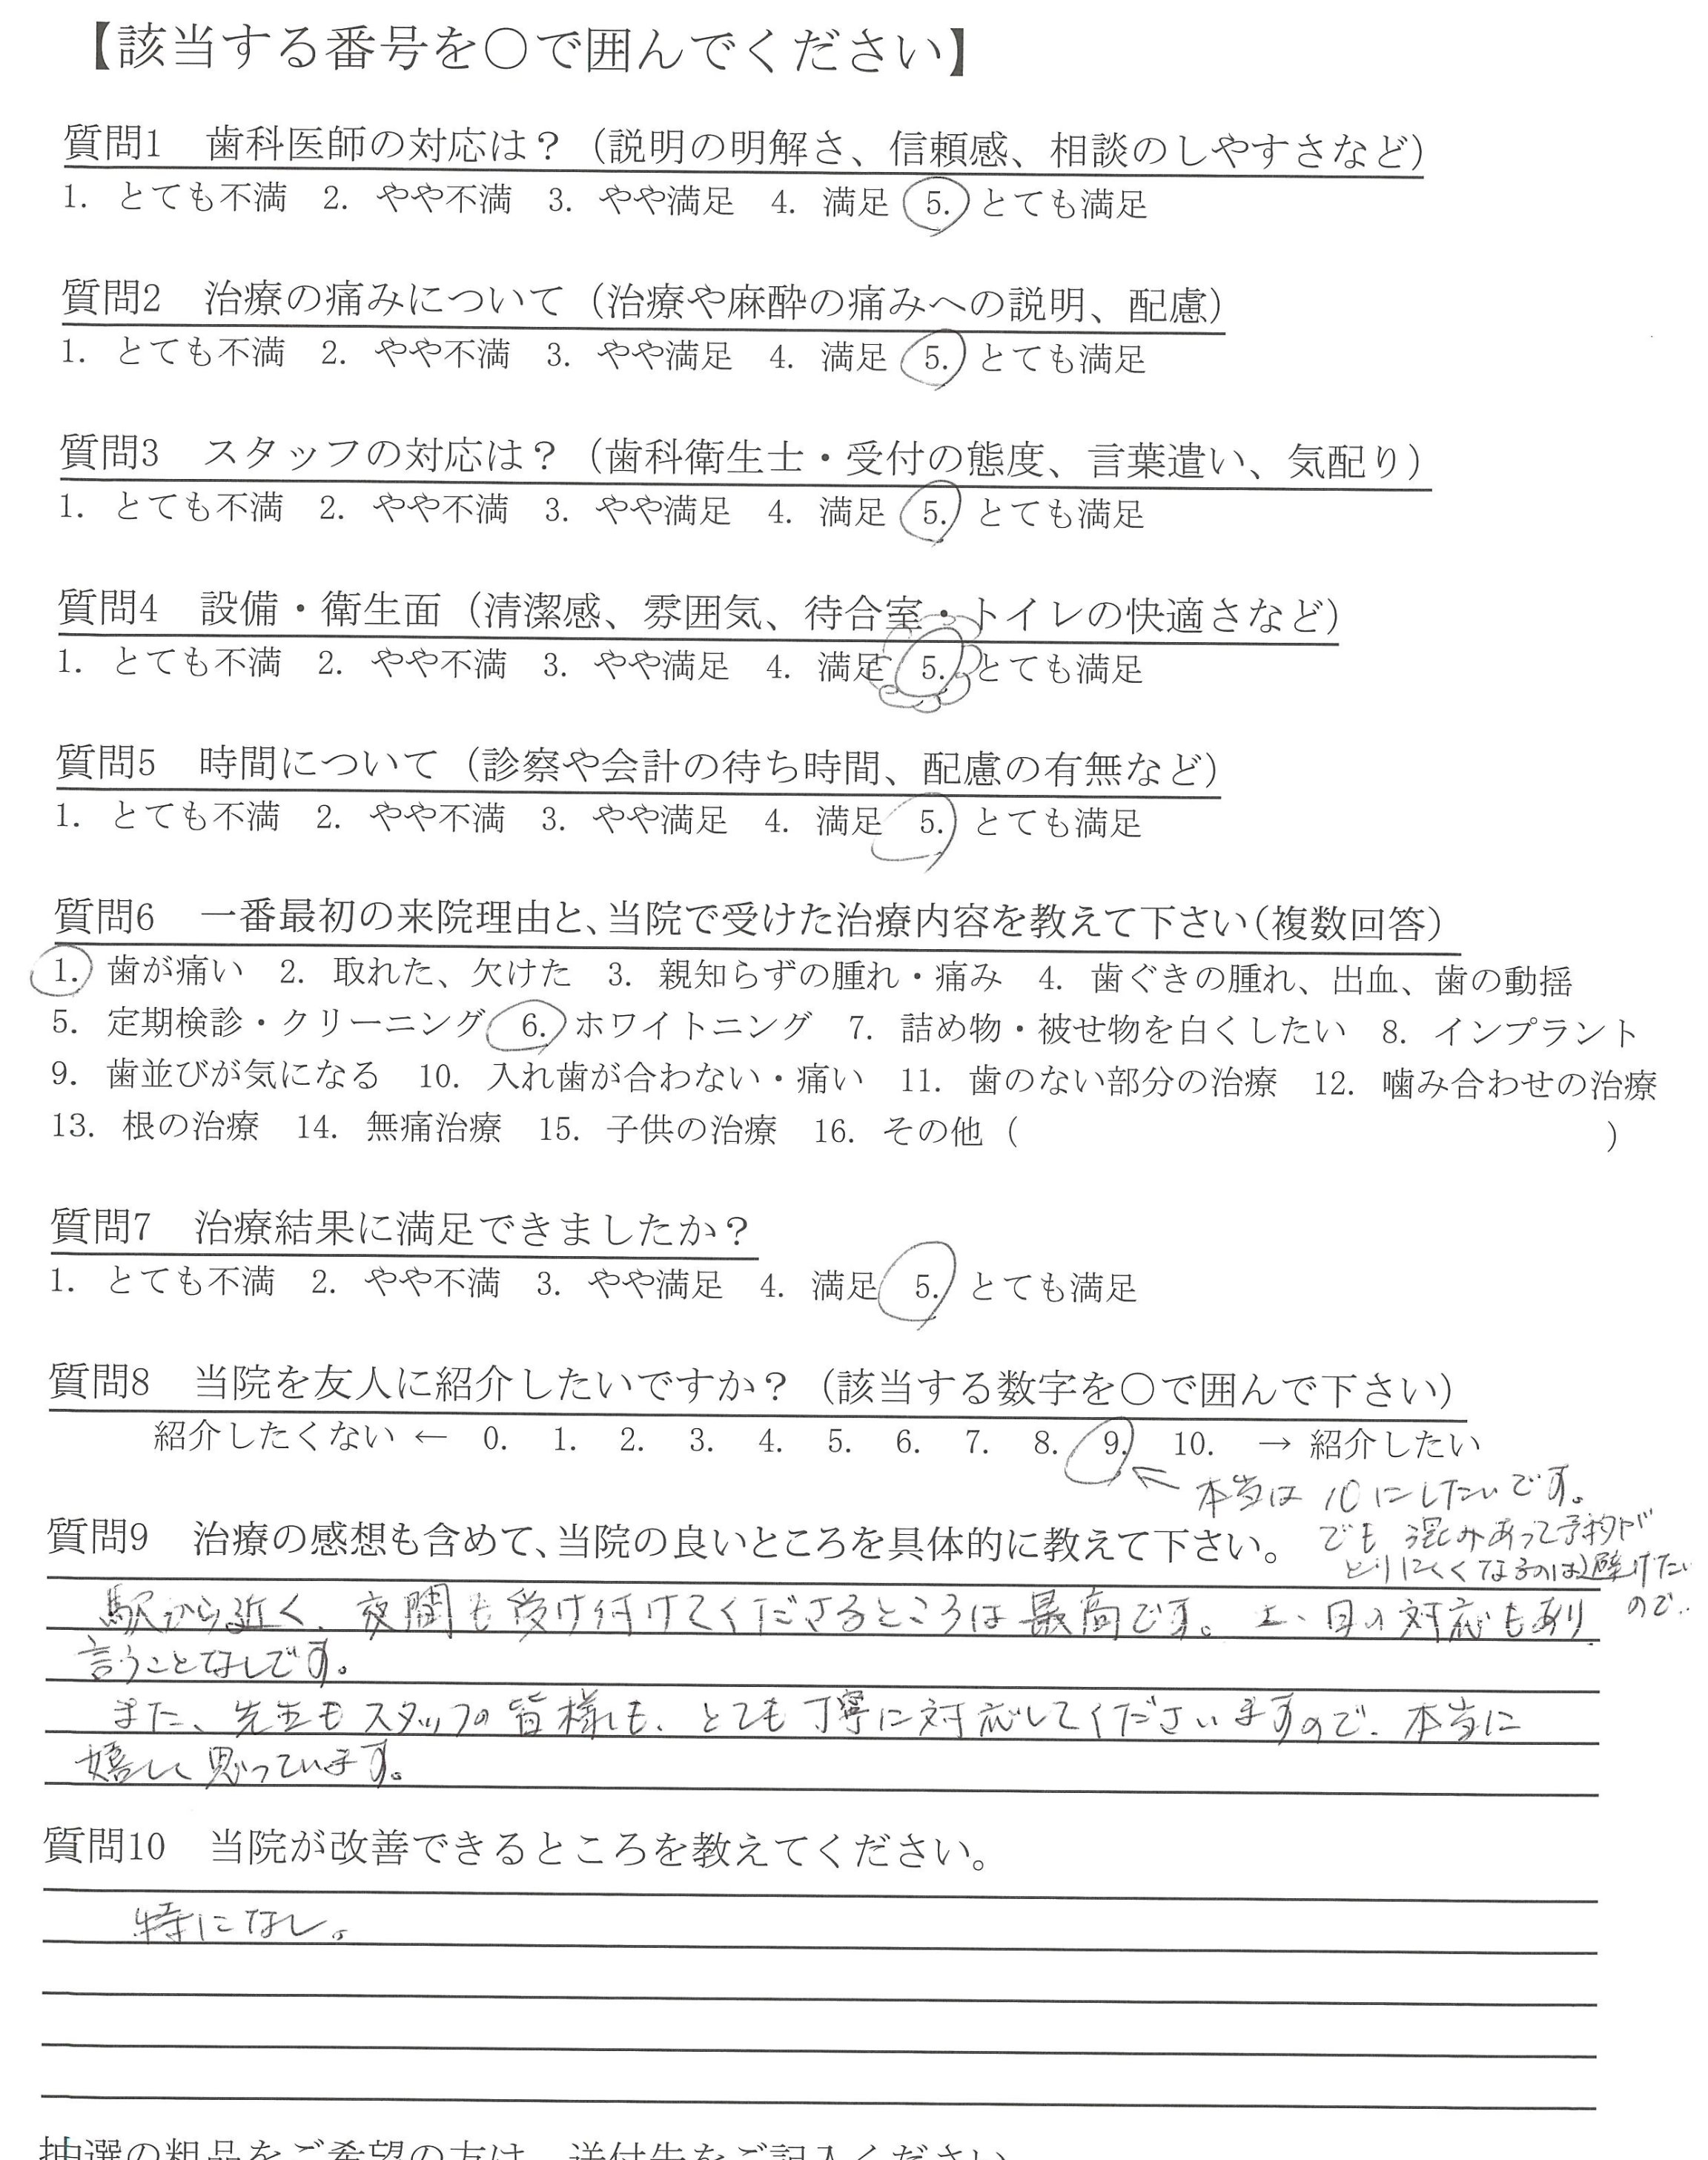 【該当する番号を○で囲んでください】
質問1 歯科医師の対応は？（説明の明解さ、信頼感、相談のしやすさなど）
1. とても不満 2. やや不満 3. やや満足 4. 満足 5. とても満足
質問2 治療の痛みについて（治療や麻酔の痛みへの説明、配慮）
1. とても不満 2. やや不満 3. やや満足 4. 満足 5. とても満足
質問3 スタッフの対応は？（歯科衛生士・受付の態度、言葉遣い、気配り）
1. とても不満 2. やや不満 3. やや満足 4. 満足 5. とても満足
質問4 設備・衛生面（清潔感、雰囲気、待合室・トイレの快適さなど）
1. とても不満 2. やや不満 3. やや満足 4. 満足 5. とても満足
質問5 時間について（診察や会計の待ち時間、配慮の有無など）
1. とても不満 2. やや不満 3. やや満足 4. 満足 5. とても満足
質問6 一番最初の来院理由と、当院で受けた治療内容を教えて下さい（複数回答）
1. 歯が痛い 2. 取れた、欠けた 3. 親知らずの腫れ・痛み 4. 歯ぐきの腫れ、出血、歯の動揺
5. 定期検診・クリーニング 6. ホワイトニング 7. 詰め物・被せ物を白くしたい 8. インプラント
9. 歯並びが気になる 10. 入れ歯が合わない・痛い 11. 歯のない部分の治療 12. 噛み合わせの治療
13. 根の治療 14. 無痛治療 15. 子供の治療 16. その他（ ）
質問7 治療結果に満足できましたか？
1. とても不満 2. やや不満 3. やや満足 4. 満足 5. とても満足
質問8 当院を友人に紹介したいですか？（該当する数字を○で囲んで下さい）
紹介したくない ← 0. 1. 2. 3. 4. 5. 6. 7. 8. 9. 10. → 紹介したい
← 本当は10にしたいです。
でも混みあって予約が
とりにくくなるのは避けたい
ので..
質問9 治療の感想も含めて、当院の良いところを具体的に教えて下さい。
駅から近く、夜間も受け付けてくださるところは最高です。土・日の対応もあり
言うことなしです。
また、先生もスタッフの皆様も、とても丁寧に対応してくださいますので、本当に
嬉しく思っています。
質問10 当院が改善できるところを教えてください。
特になし。
抽選の粗品をご希望の方は、送付先をご記入ください